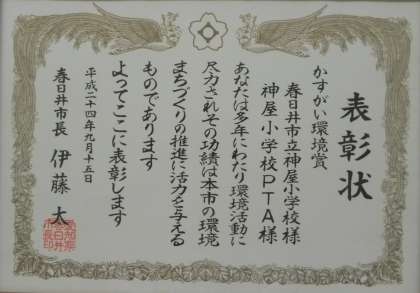 表彰状
かすがい環境賞
春日井市立神屋小学校様
神屋小学校PTA様
あなたは多年にわたり環境活動に
尽力されその功績は本市の環境
まちづくりの推進に活力を与える
ものであります
よってここに表彰します
平成二十四年九月十五日
春日井市長 伊藤 太